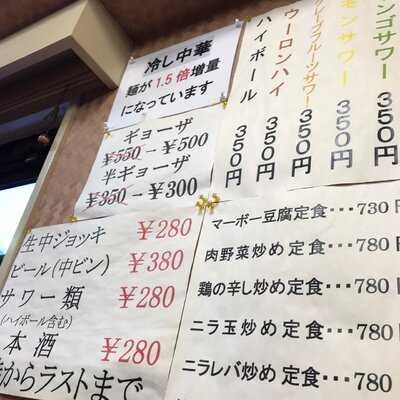 冷し中華
麺が1.5倍増量
になっています
ギョーザ
¥550→¥500
半ギョーザ
¥350→¥300
ハイボール 350円
ウーロンハイ 350円
グレープフルーツサワー 350円
モンサワー 350円
ンゴサワー 350円
生中ジョッキ ¥280
ビール(中ビン) ¥380
サワー類 ¥280
(ハイボール含む)
本酒 ¥280
からラストまで
マーボー豆腐定食・・・730円
肉野菜炒め定食・・・780円
鶏の辛し炒め定食・・・780
ニラ玉炒め定食・・・780
ニラレバ炒め定食・・・780